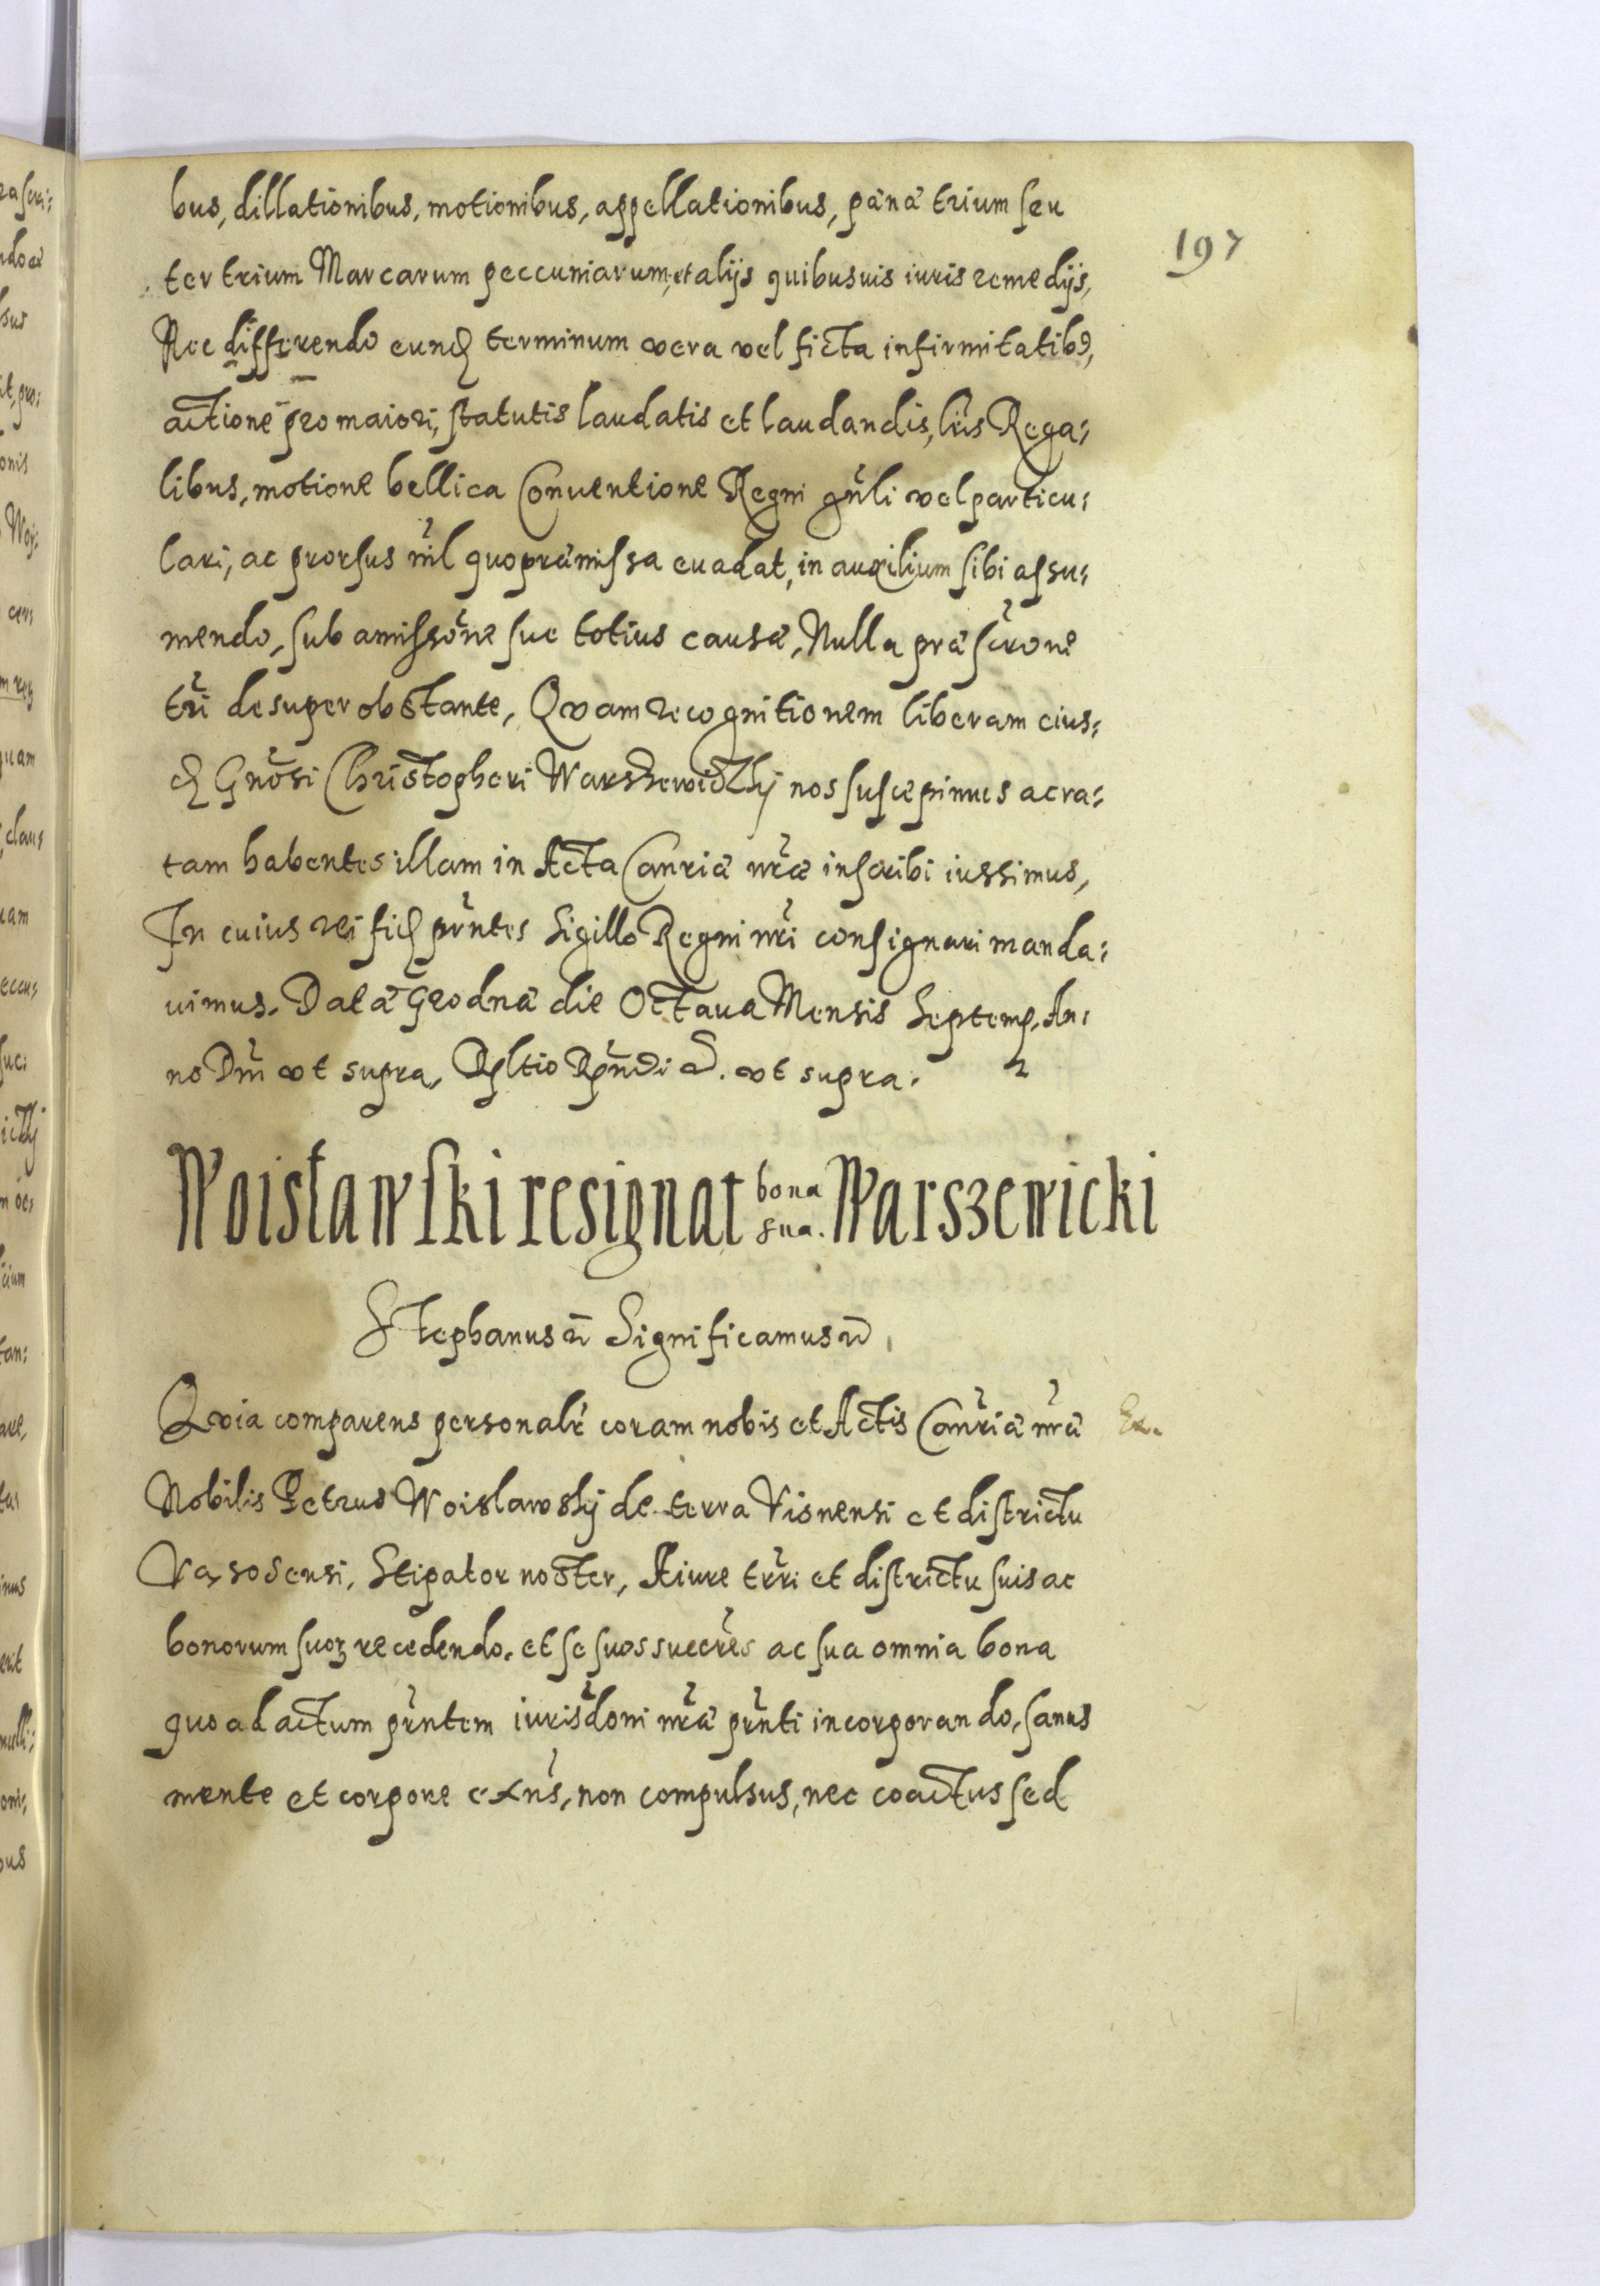 bus, dillationibus, motionibus, appellationibus, pæna trium seu
197
ter trium Marcarum peccuniarum, et alijs quibusuis iuris remedijs,
Nec differendo eund terminum vera vel ficta infirmitatibus,
actione pro maiori, statutis laudatis et laudandis, lris Rega:
libus, motione bellica Conuentione Regni gnli vel particu:
lari, ac prorsus nil quo præmissa euadat, in auxilium sibi assu:
mendo, sub amissone sue totius causæ, Nulla præscrone
tri desuper obstante, Qvam recognitionem liberam eius:
d Gnosi Christopheri Warszewiczky nos suscepimus ac ra:
tam habentes illam in Acta Canriæ nræ inscribi iussimus,
In cuius rei fid prntes Sigillo Regni nri consignari manda:
uimus. Datæ Grodnæ die Octaua Mensis Septemb. An:
no Dni vt supra, Rltio Rndi d. vt supra.
Woisławski resignat bona sua. Warszewicki
Stephanus et Significamus et
Qvia comparens personalr coram nobis et Actis Canriæ nræ
Ex.
Nobilis Petrus Woislawsky de terra Visnensi et districtu
Vasosensi, Stipator noster, A iure trri et districtu suis ac
bonorum suor recedendo. et se suos succres ac sua omnia bona
quo ad actum prntem iurisdoni nræ prnti incorporando, sanus
mente et corpore exns, non compulsus, nec coactus sed